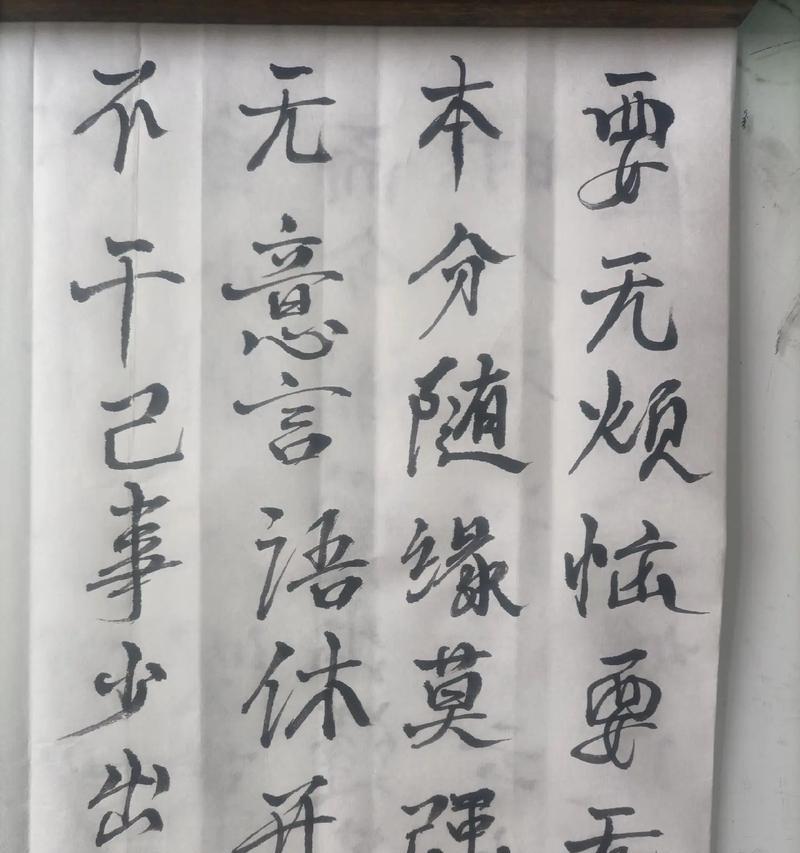 要无烦恼要无
本分随缘莫强
无意言语休开
不干己事少出